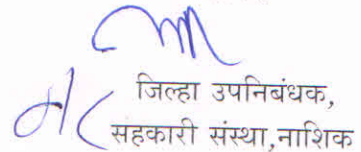 जिल्हा उपनिबंधक,
सहकारी संस्था,नाशिक